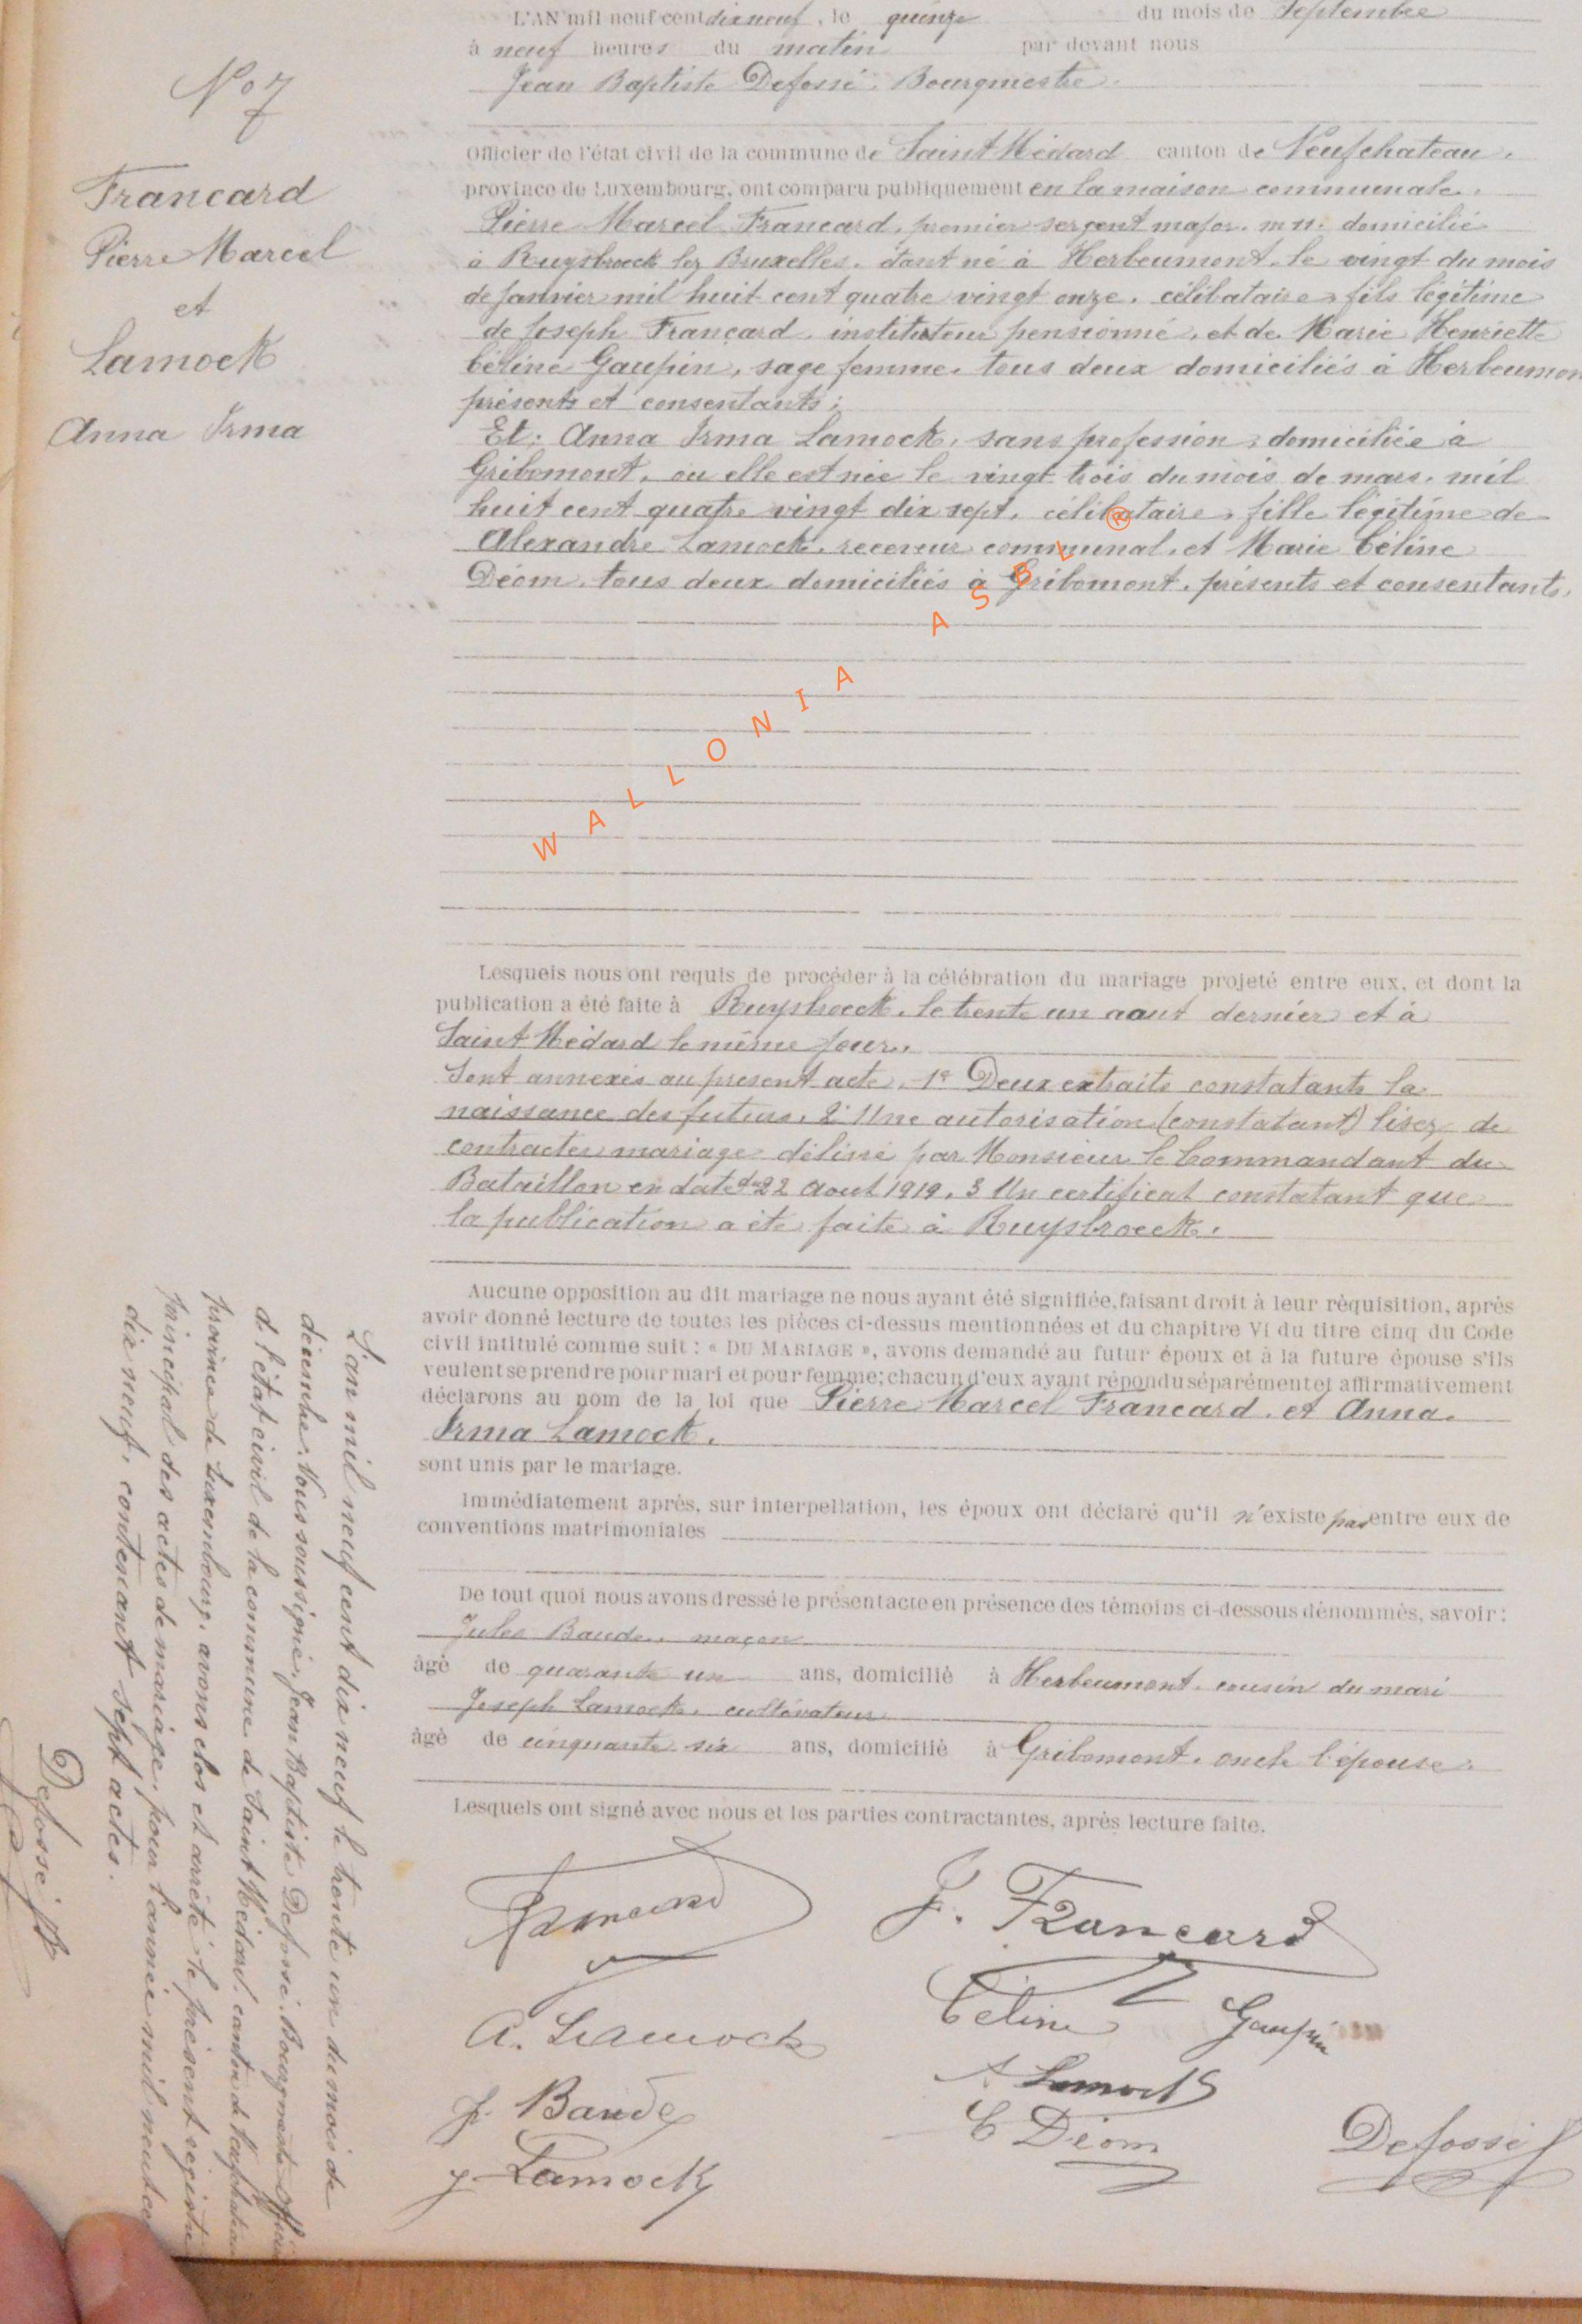 L'AN mil neuf cent dix neuf, le quinze du mois de Septembre
à neuf heures du matin par devant nous
Jean Baptiste Defossé, Bourgmestre.
Officier de l'état civil de la commune de Saint Médard canton de Neufchateau,
province de Luxembourg, ont comparu publiquement en la maison communale.
Pierre Marcel Francard, premier sergent major. m n. domicilié
à Ruysbroeck lez Bruxelles. étant né à Herbeumont, le vingt du mois
de Janvier mil huit cent quatre vingt onze. célibataire, fils légitime
de Joseph Francard, instituteur pensionné, et de Marie Henriette
Céline Gaupin, sage femme, tous deux domiciliés à Herbeumon
présents et consentants;
Et: Anna Irma Lamock, sans profession, domiciliée à
Gribomont, ou elle est née le vingt trois du mois de mars, mil
huit cent quatre vingt dix sept, célibataire, fille légitime de
Alexandre Lamock, receveur communal, et Marie Céline
Déom, tous deux domiciliés à Gribomont, présents et consentants,
Lesquels nous ont requis de procéder à la célébration du mariage projeté entre eux, et dont la
publication a été faite à Ruysbroeck, le trente un aout dernier et à
Saint Médard le même jour.
Sont annexés au present acte, 1° Deux extraits constatants la
naissance des futurs, 2° Une autorisation (constatant) lisez de
contracter mariage délivré par Monsieur le Commandant du
Bataillon en date du 22 Aout 1919, 3 Un certificat constatant que
la publication a été faite à Ruysbroeck.
Aucune opposition au dit mariage ne nous ayant été signifiée, faisant droit à leur réquisition, après
avoir donné lecture de toutes les pièces ci-dessus mentionnées et du chapitre VI du titre cinq du Code
civil intitulé comme suit : « DU MARIAGE », avons demandé au futur époux et à la future épouse s'ils
veulent se prendre pour mari et pour femme; chacun d'eux ayant répondu séparément et affirmativement
déclarons au nom de la loi que Pierre Marcel Francard, et Anna
Irma Lamock.
sont unis par le mariage.
Immédiatement après, sur interpellation, les époux ont déclaré qu'il n'existe pas entre eux de
conventions matrimoniales
De tout quoi nous avons dressé le présent acte en présence des témoins ci-dessous dénommés, savoir :
Jules Baude, maçon
âgé de quarante un ans, domicilié à Herbeumont, cousin du mari
Joseph Lamock, cultivateur
âgé de cinquante six ans, domicilié à Gribomont, oncle l'épouse.
Lesquels ont signé avec nous et les parties contractantes, après lecture faite.
Francard
J. Francard
Céline Gaupin
A. Lamock
A Lamock
J. Baude
C Déom
Defossé
J Lamock
No 7
Francard
Pierre Marcel
et
Lamock
Anna Irma
L'an mil neuf cent dix neuf le trente un du mois de
décembre. Nous soussigné, Jean Baptiste Defossé, Bourgmestre Officier
d. l'état civil de la commune de Saint Médard, canton de Neufchateau
province de Luxembourg, avons clos et arrêté le présent registre
principal des actes de mariage, pour l'année mil neuf ce
dix neuf, contenant sept actes.
Defossé
WALLONIA ASBL ®